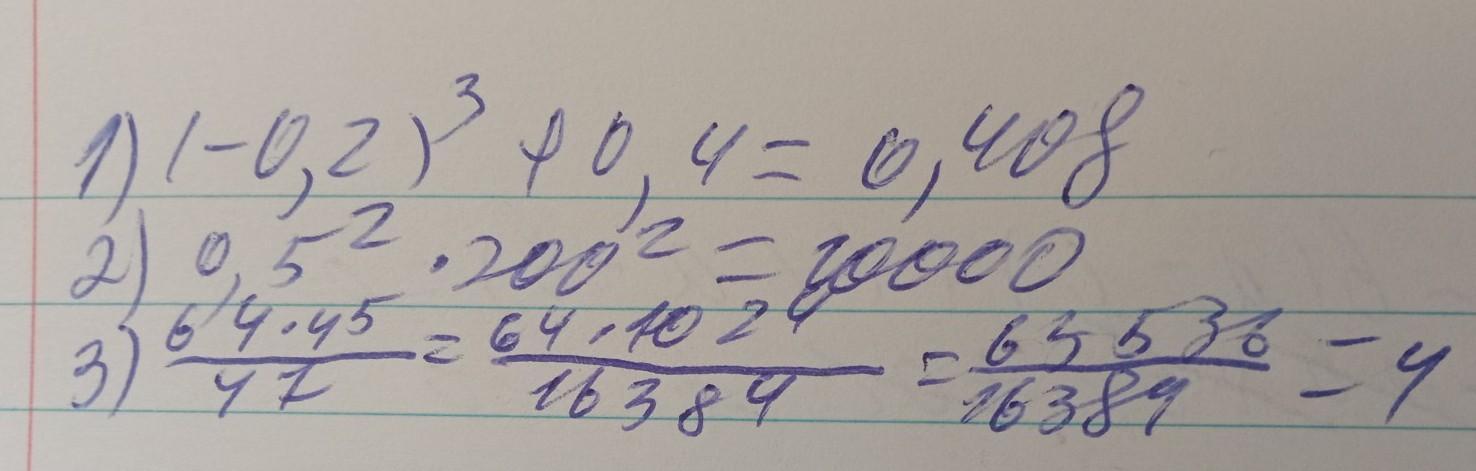 1) (-0,2)³ + 0,4 = 0,408
2) 0,5² · 200² = 10000
3) 64·4⁵/4⁷ = 64·1024/16384 = 65536/16384 = 4